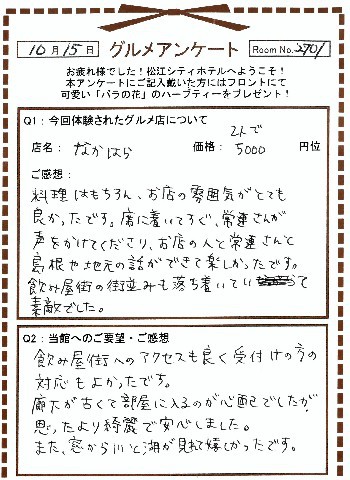 10月15日 グルメアンケート Room No. 2701
お疲れ様でした！松江シティホテルへようこそ！
本アンケートにご記入戴いた方にはフロントにて
可愛い「バラの花」のハーブティーをプレゼント！
Q1：今回体験されたグルメ店について
2人で
店名： なかはら 価格： 5000 円位
ご感想：
料理はもちろん、お店の雰囲気がとても
良かったです。席に着いてすぐ、常連さんが
声をかけてくださり、お店の人と常連さんと
島根や地元の話ができて楽しかったです。
飲み屋街の街並みも落ち着いていて
素敵でした。
Q2：当館へのご要望・ご感想
飲み屋街へのアクセスも良く受付けの方の
対応もよかったです。
廊下が古くて部屋に入るのが心配でしたが、
思ったより綺麗で安心しました。
また、窓から川と湖が見れて嬉しかったです。